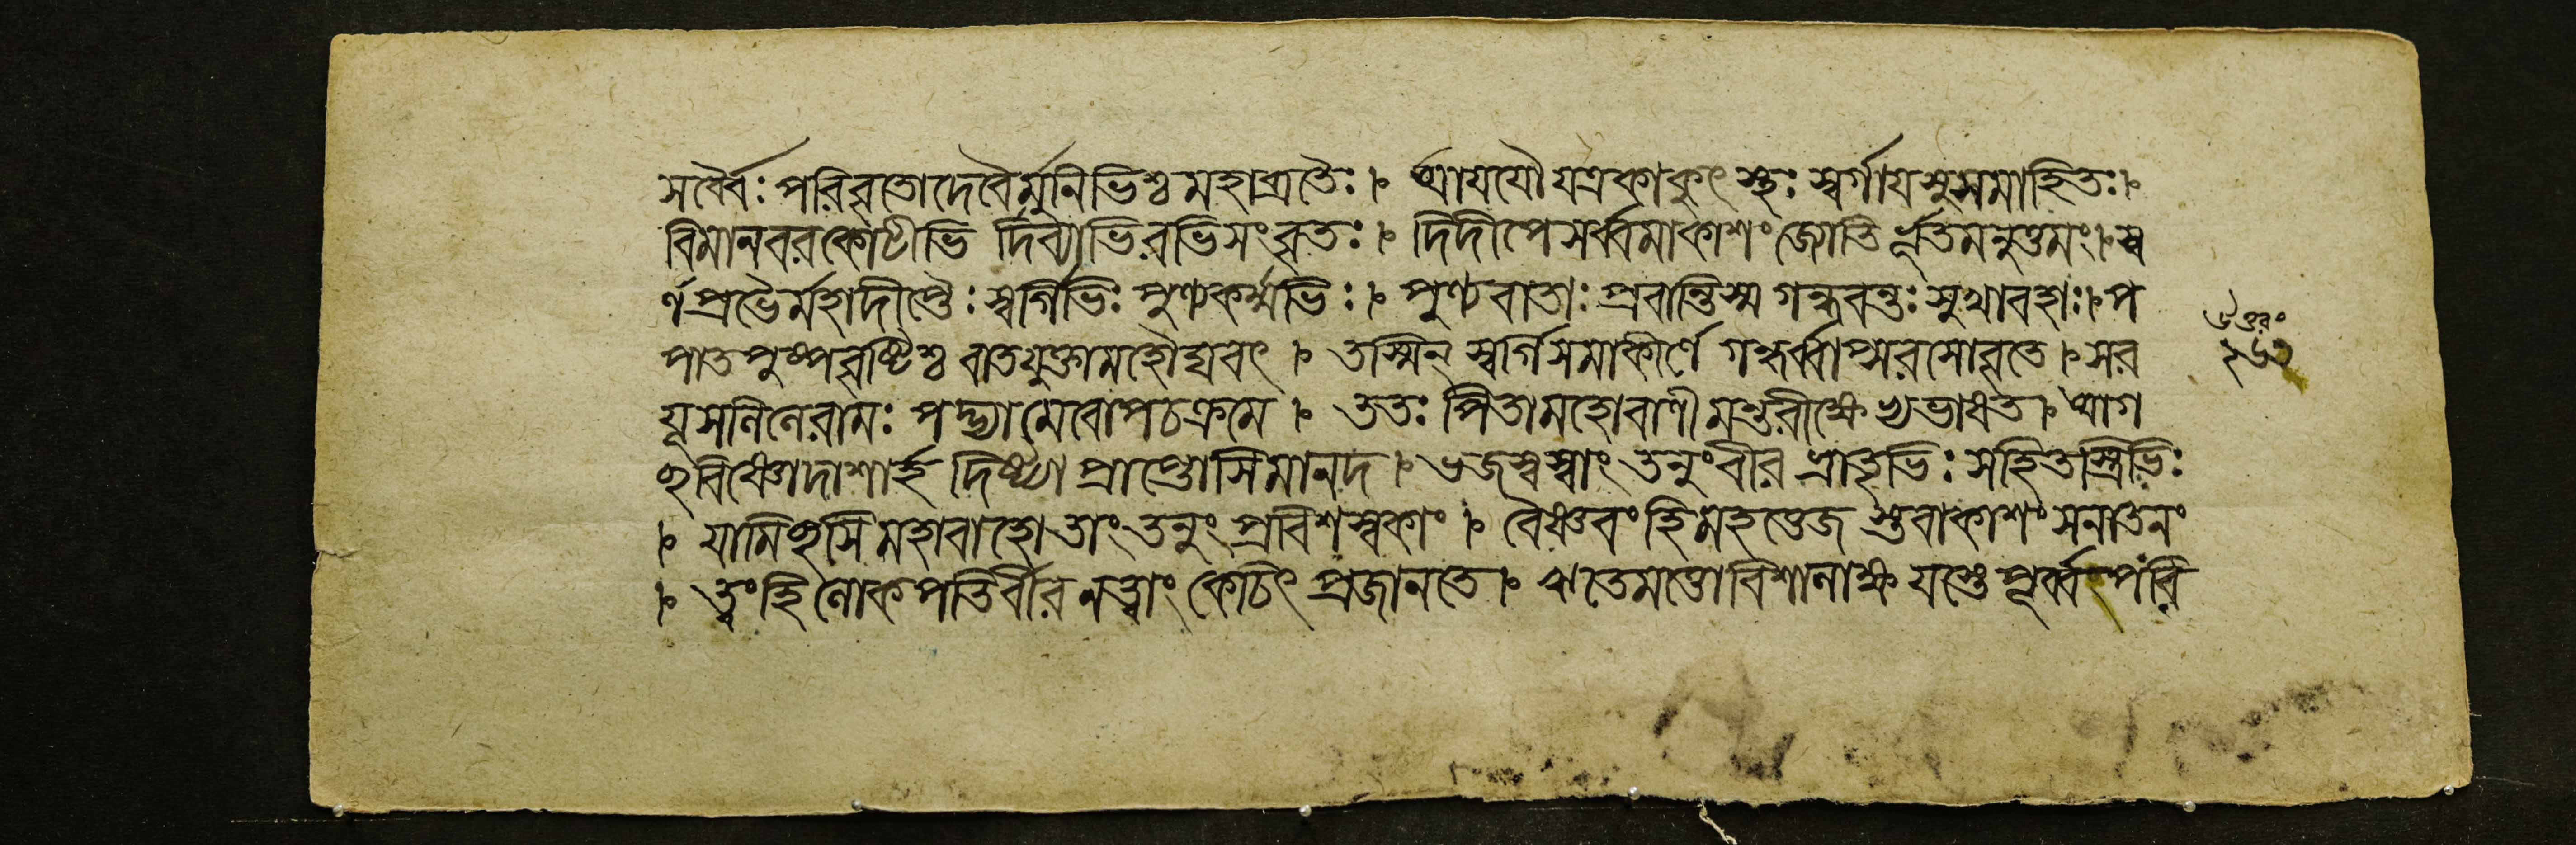 সর্ব্বৈঃ পরিবৃতোদেবৈর্মুনিভিশ্চ মহাব্রতৈঃ। আযযৌ যত্রকাকুৎস্থঃ স্বর্গায সুসমাহিতঃ।
বিমানবরকোটীভি র্দিব্যাভিরভিসংবৃতঃ। দিদীপে সর্ব্বমাকাশং জ্যোতির্ভূতমনুত্তমং। স্ব
র্ণপ্রভৈর্মহাদীপ্তৈঃ স্বর্গিভিঃ পুণ্যকর্ম্মভিঃ। পুণ্যবাতাঃ প্রবান্তিস্ম গন্ধবন্তঃ সুখাবহাঃ। প
পাত পুষ্পবৃষ্টিশ্চ বাতযুক্তামহৌঘবৎ। তস্মিন্ স্বর্গিসমাকীর্ণে গন্ধর্ব্বাপ্সরসোবৃতে। সর
যূসলিলেরামঃ পদ্ভ্যামেবোপচক্রমে। ততঃ পিতামহোবাণীমন্তরীক্ষেভ্যভাষত। আগ
চ্ছ বিষ্ণোদাশার্হ দিষ্ট্যা প্রাপ্তোসিমানদ। ভজস্বস্বাং তনুং বীর ভ্রাতৃভিঃ সহিতস্ত্রিভিঃ
। যামিচ্ছসি মহাবাহো তাং তনুং প্রবিশস্বকাং। বৈষ্ণবং হি মহত্তেজ স্তুবাকাশং সনাতনং
। ত্বং হি লোকপতির্বীর নত্বাং কেচিৎ প্রজানতে। ঋতেমত্তোবিশালাক্ষ যস্তে পূর্ব্বং পরি
উত্তরং